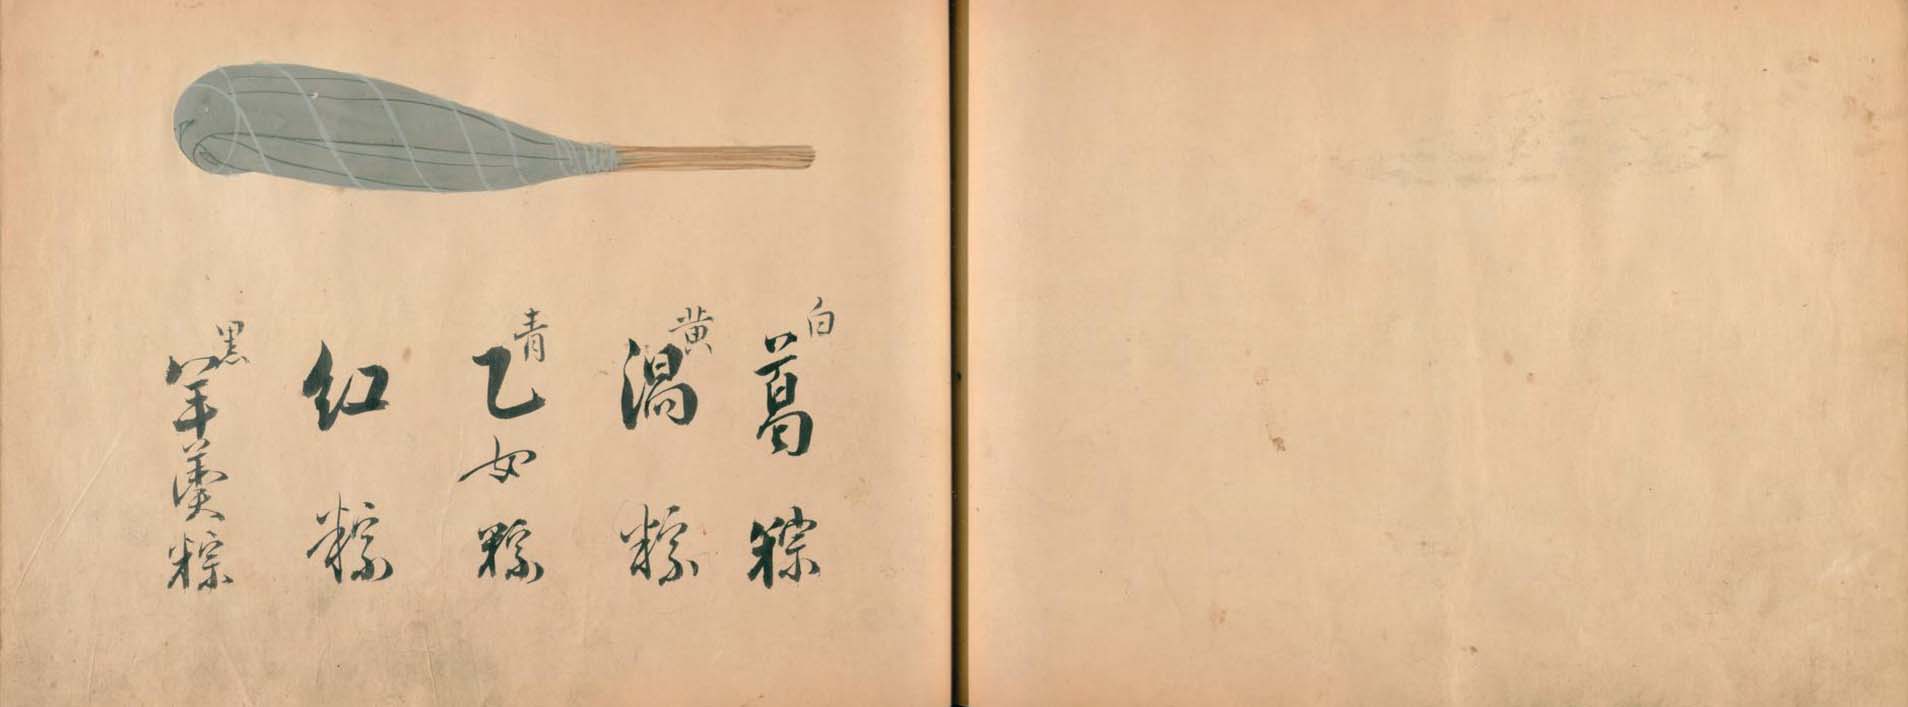 白
葛粽
黄
渦粽
青
乙女粽
紅粽
黒
羊羹粽